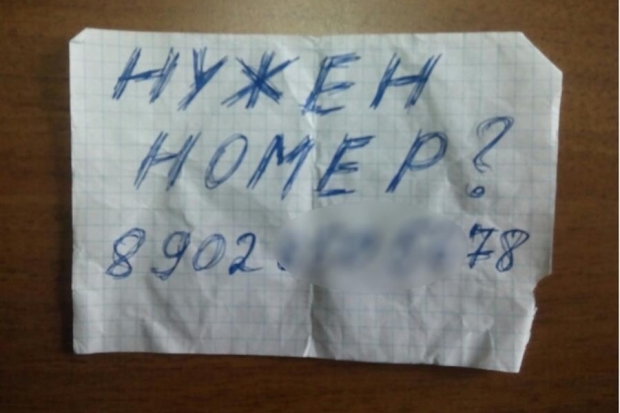 НУЖЕН
НОМЕР?
8902 78